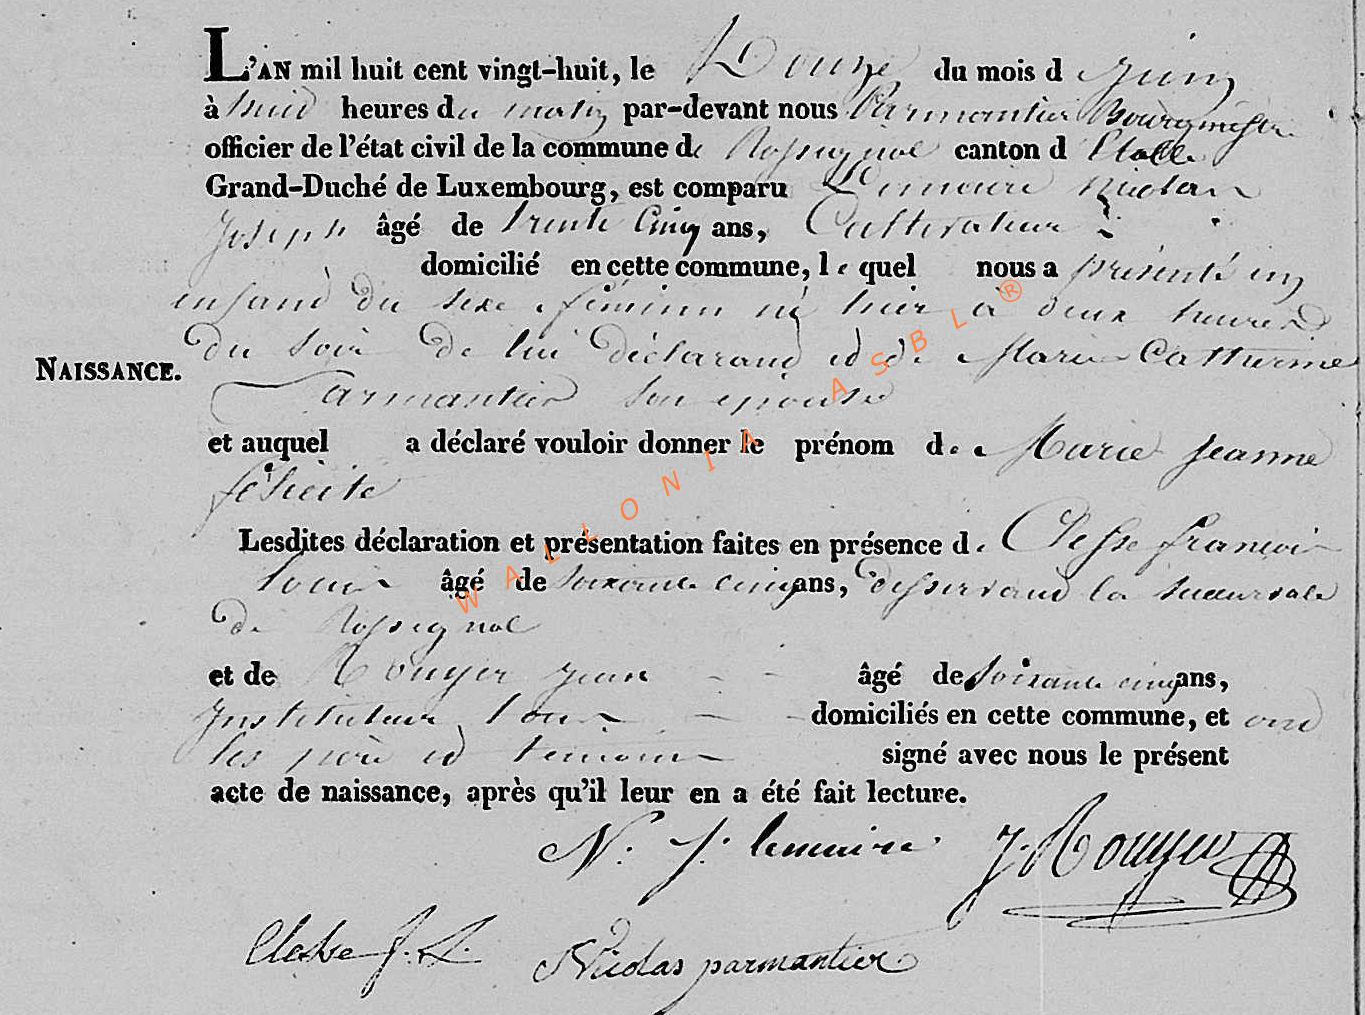 L'AN mil huit cent vingt-huit, le Douze du mois d juin
à huid heures du matin par-devant nous Parmantier Bourgmestre
officier de l'état civil de la commune de Rossignol canton d Etalle
Grand-Duché de Luxembourg, est comparu Lemaire nicolas
Joseph âgé de trente Cinq ans, Cultivateur
domicilié en cette commune, le quel nous a présenté un
enfand du sexe féminin né hier à deux heures
Du soir De lui Déclarand et de Marie Catherine
NAISSANCE.
Parmantier son epouse
et auquel a déclaré vouloir donner le prénom de Marie jeanne
félicité
Lesdites déclaration et présentation faites en présence de Clesse francois
louis âgé de soixante cinq ans, desservand la succursale
De Rossignol
et de Rouyer jean âgé de soixante cinq ans,
Instituteur tous domiciliés en cette commune, et ond
les père et temoins signé avec nous le présent
acte de naissance, après qu'il leur en a été fait lecture.
N. J. lemaire J. Rouyer
Clesse f. L. Nicolas parmantier
WALLONIA ASBL ®